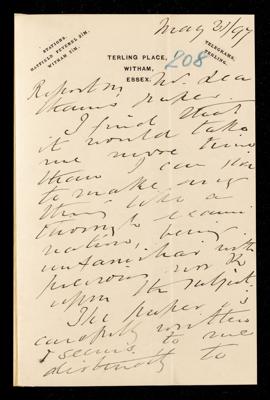 May 31/97
STATIONS.
HATFIELD PEVEREL 2½M.
WITHAM 3M.
TELEGRAMS,
TERLING.
TERLING PLACE,
WITHAM,
ESSEX.
208
Report on Mr. Lea
tham's paper.
I find that
it would take
me more time
than I can
to make any
thing like a
thorough exami
nation, being
unfamiliar with
previous work
upon the subject.
The paper is
carefully written
& seems to me
distinctly to